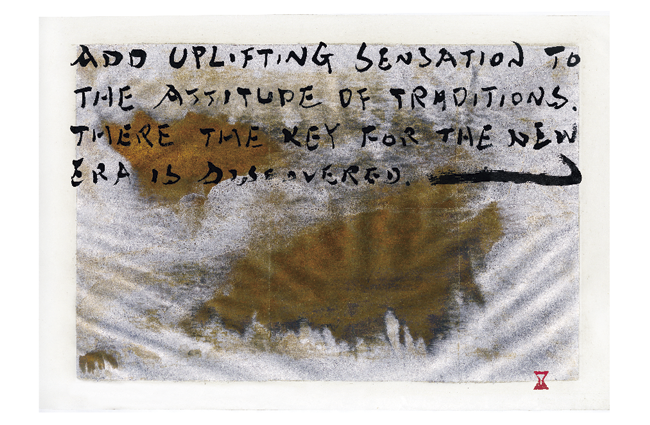 ADD UPLIFTING SENSATION TO
THE ATTITUDE OF TRADITIONS.
THERE THE KEY FOR THE NEW
ERA IS DISCOVERED.